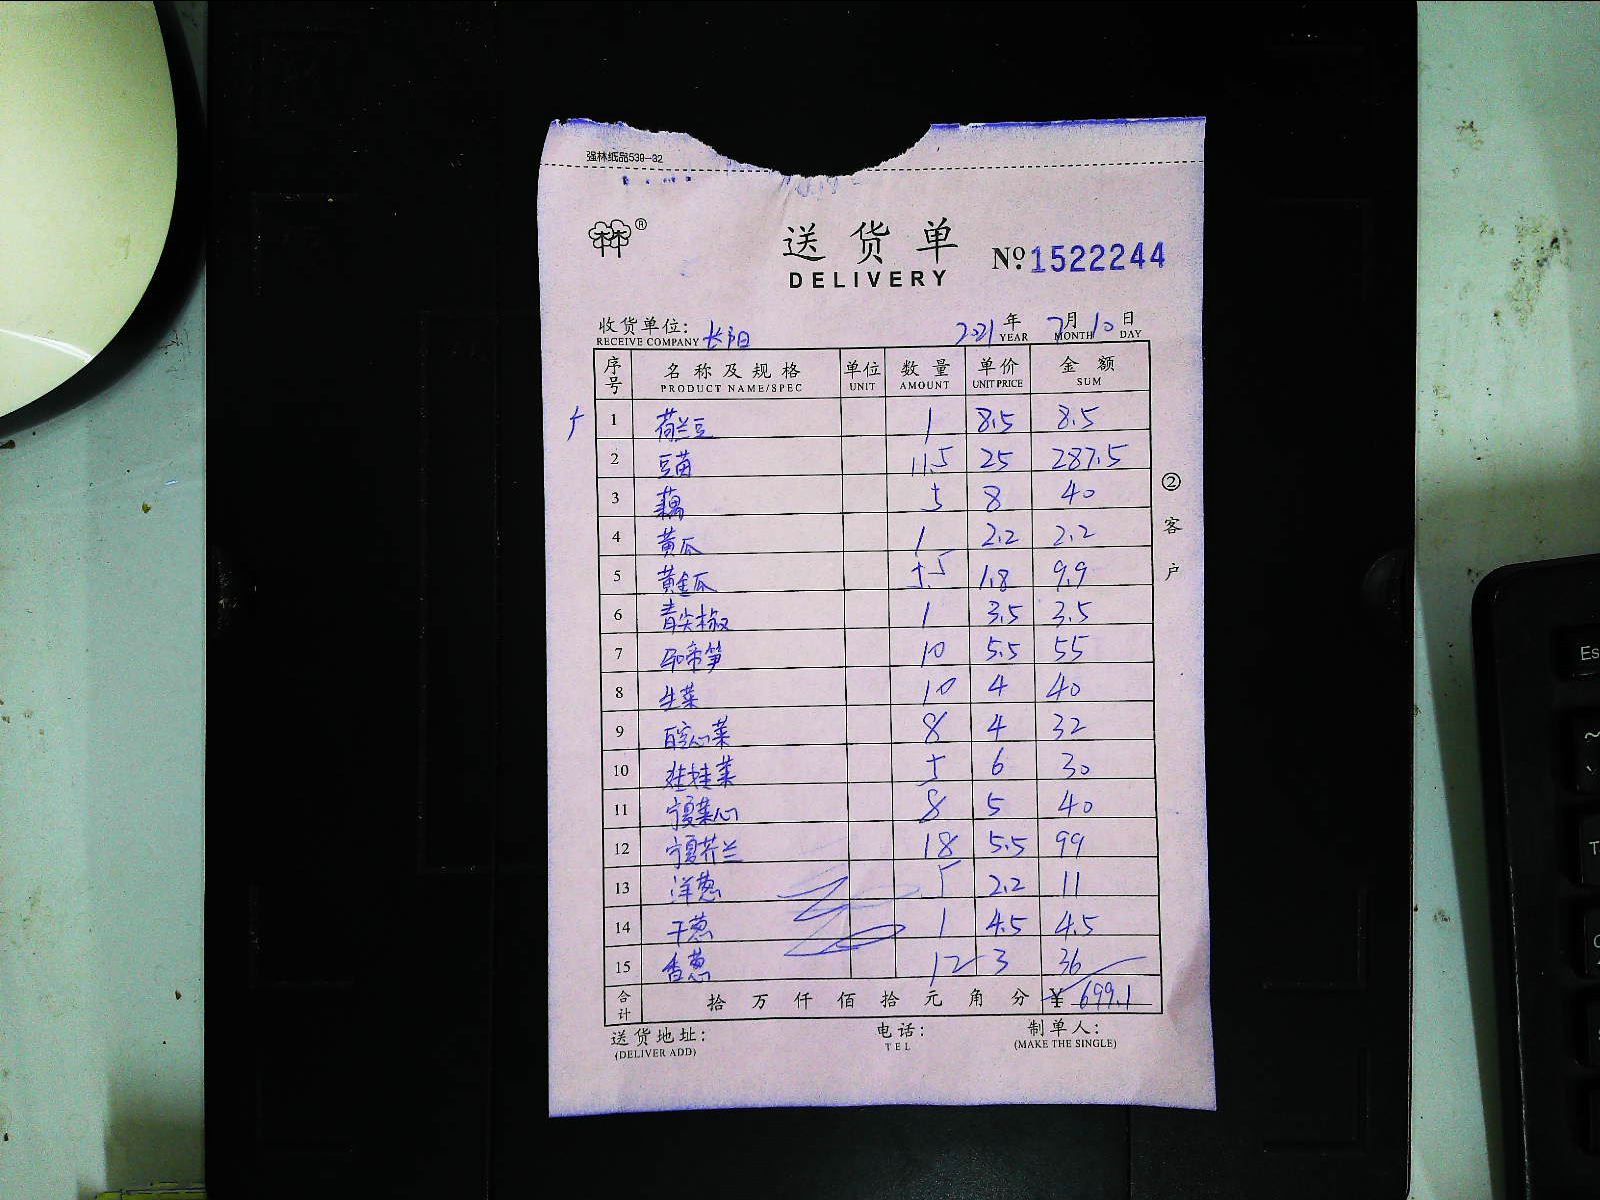 强林纸品539-32
林®
送货单
DELIVERY
№ 1522244
收货单位: 长阳 2021年 7月 10日
RECEIVE COMPANY YEAR MONTH DAY
序号 名称及规格 单位 数量 单价 金额
PRODUCT NAME/SPEC UNIT AMOUNT UNIT PRICE SUM
1 荷兰豆 1 8.5 8.5
2 豆苗 11.5 25 287.5
3 藕 5 8 40
4 黄瓜 1 2.2 2.2
5 黄金瓜 5.5 1.8 9.9
6 青尖椒 1 3.5 3.5
7 马蹄笋 10 5.5 55
8 生菜 10 4 40
9 白空心菜 8 4 32
10 娃娃菜 5 6 30
11 宁夏菜心 8 5 40
12 宁夏芥兰 18 5.5 99
13 洋葱 5 2.2 11
14 干葱 1 4.5 4.5
15 香葱 12 3 36
合计 拾 万 仟 佰 拾 元 角 分 ¥ 699.1
送货地址: 电话: 制单人:
(DELIVER ADD) TEL (MAKE THE SINGLE)
②客户
Es